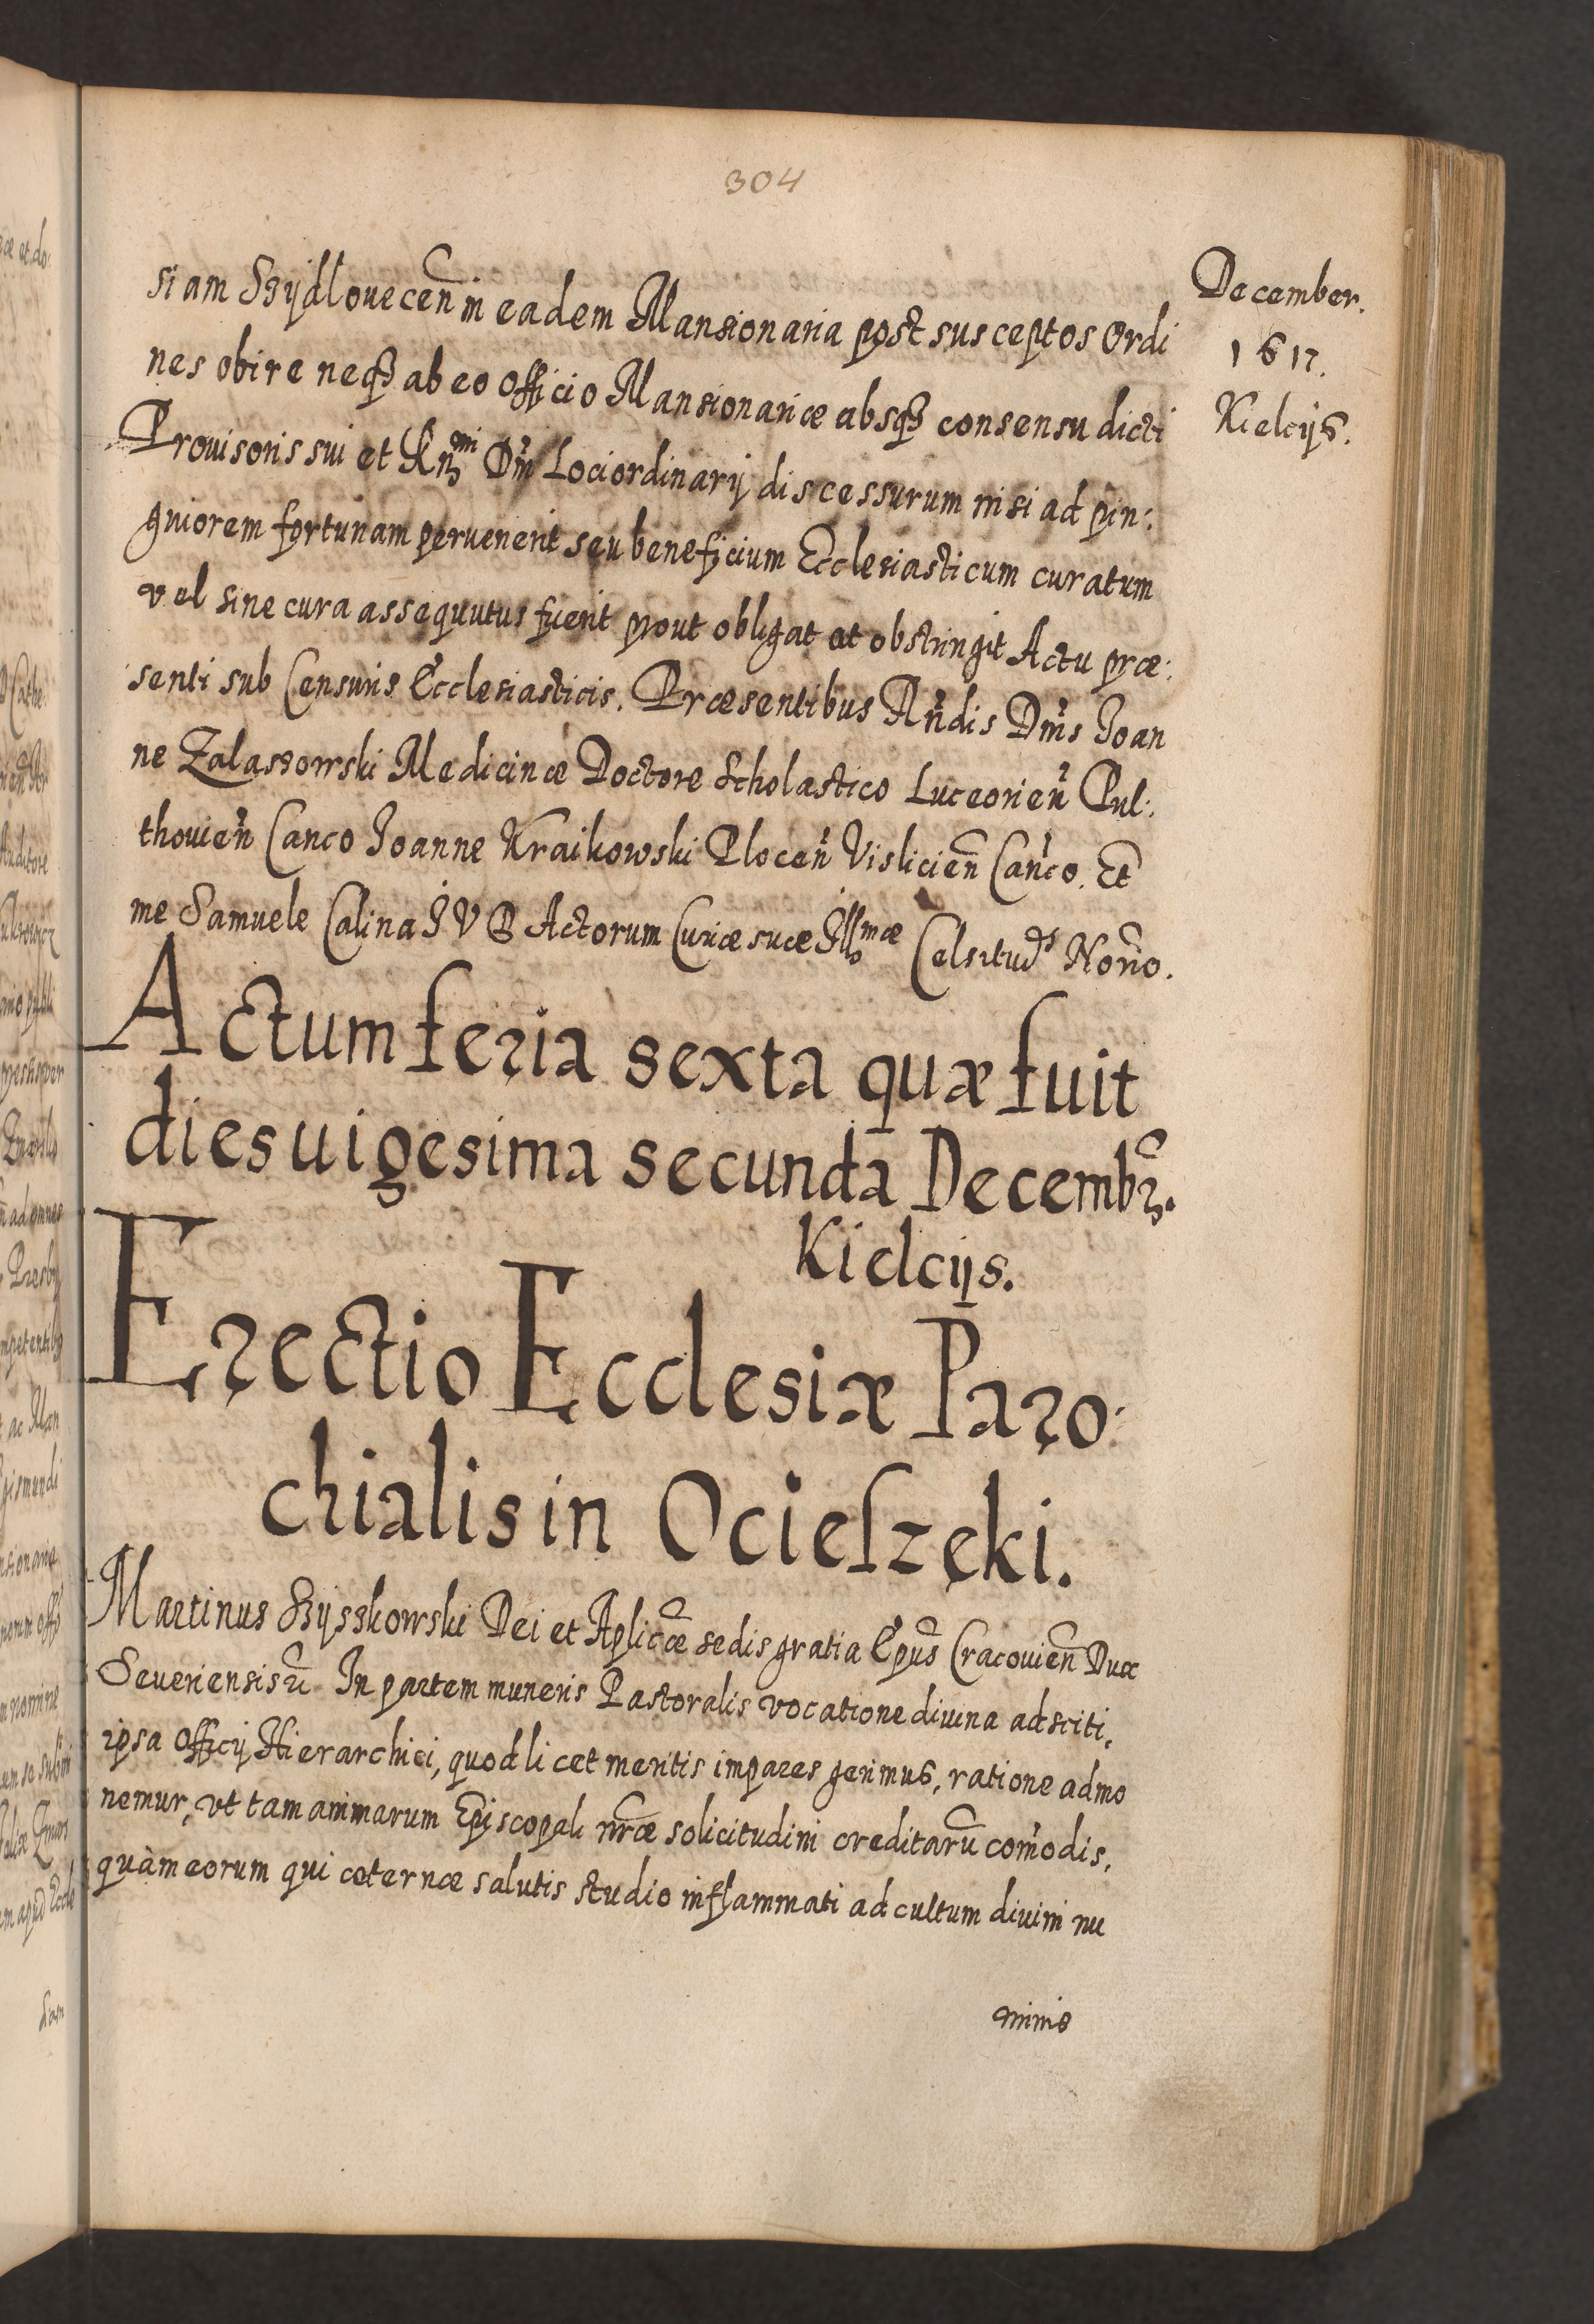 304
December.
1617.
Kielcijs.
siam Szijdlouecen̄ in eadem Mansionaria post susceptos Ordi
nes obire neqȝ ab eo officio Mansionariæ absqȝ consensu dicti
Prouisoris sui et Rñdmi Dñi Loci ordinarij discessurum nisi ad pin:
guiorem fortunam peruenerit seu beneficium Ecclesiasticum curatum
vel sine cura assequutus fuerit prout obligat et obstringit Actu præ:
senti sub Censuris Ecclesiasticis. Præsentibus Rñdis Dñis Joan
ne Zalaszowski Medicinæ Doctore Scholastico Luceorien̄ Pul:
thouien̄ Canco Joanne Kraikowski Plocen̄ Vislicien̄ Can̄co. Et
me Samuele Calina J V D Actorum Curiæ suæ Illmæ Celsitud̄s Nor̄io.
Actum feria sexta quæ fuit
dies uigesima secunda Decembr̄.
Kielcijs.
Erectio Ecclesiæ Paro:
chialis in Ocieszęki.
Martinus Szysskowski Dei et Aplicæ sedis gratia Ep̄us Cracouien̄ Dux
Seueriensis etc̄ In partem muneris Pastoralis vocatione diuina adsciti,
ipsa Officij Hierarchici, quod licet meritis impares gerimus, ratione admo
nemur, vt tam animarum Episcopali nr̄æ solicitudini creditarū com̄odis,
quàm eorum qui æternæ salutis studio inflammati ad cultum diuini nu
minis